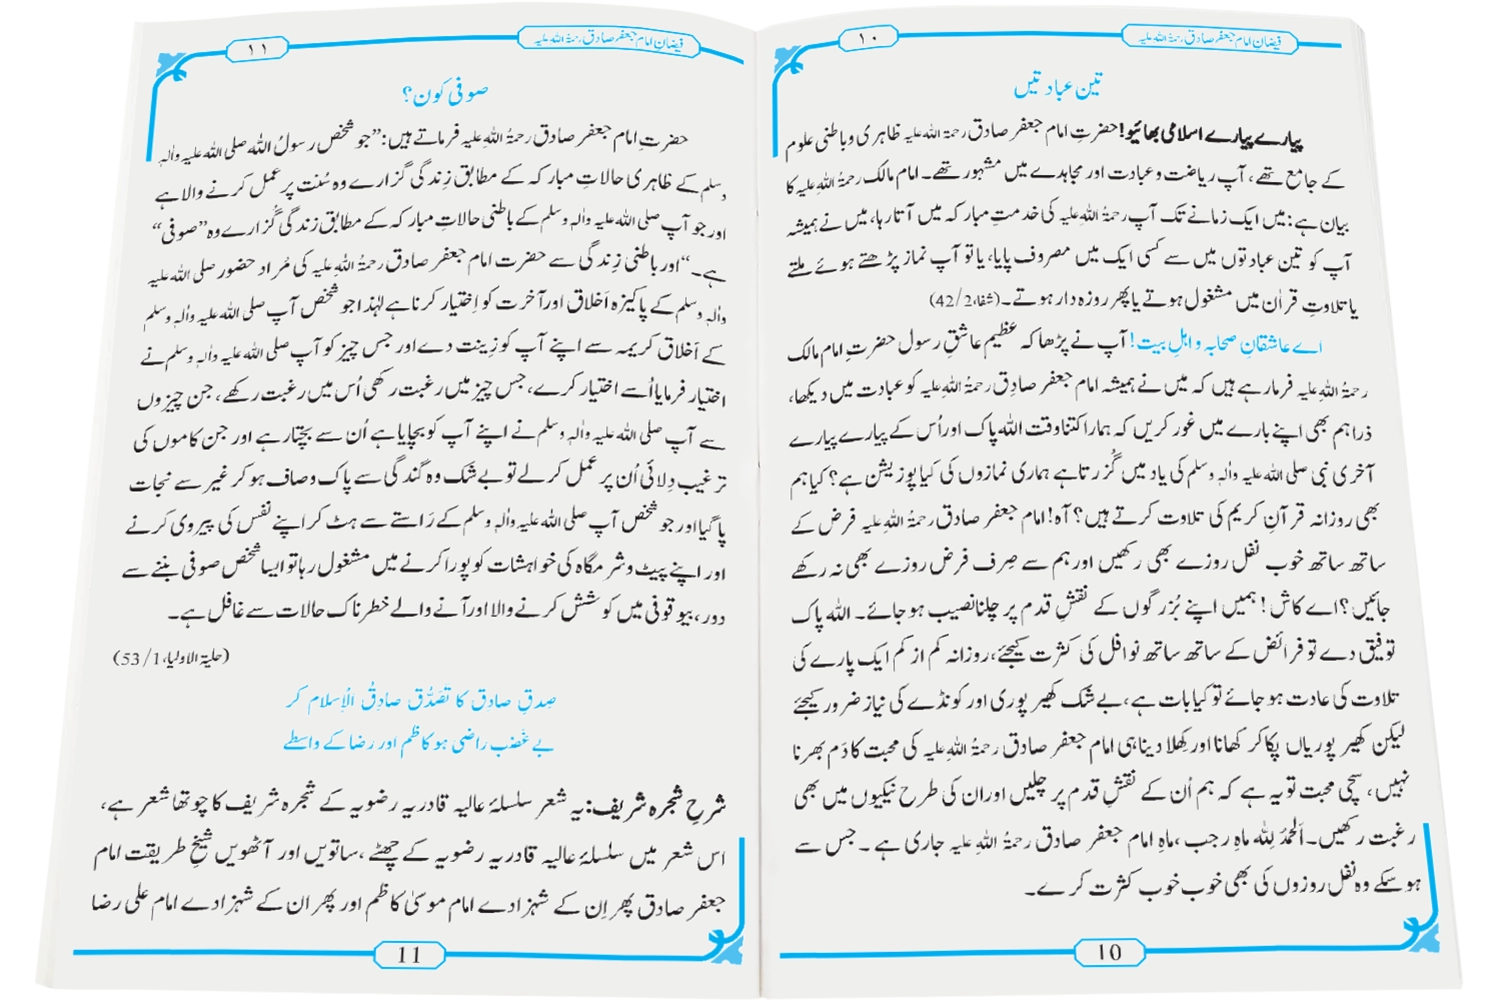 فیضانِ امام جعفر صادق رحمۃُ اللہِ علیہ
۱۰
تین عبادتیں
پیارے پیارے اسلامی بھائیو! حضرتِ امام جعفر صادق رحمۃُ اللہِ علیہ ظاہری و باطنی علوم
کے جامع تھے، آپ ریاضت و عبادت اور مجاہدے میں مشہور تھے۔ امام مالک رحمۃُ اللہِ علیہ کا
بیان ہے: میں ایک زمانے تک آپ رحمۃُ اللہِ علیہ کی خدمتِ مبارکہ میں آتا رہا، میں نے ہمیشہ
آپ کو تین عبادتوں میں سے کسی ایک میں مصروف پایا، یا تو آپ نماز پڑھتے ہوئے ملتے
یا تلاوتِ قراٰن میں مشغول ہوتے یا پھر روزہ دار ہوتے۔ (شفا، 2/42)
اے عاشقانِ صحابہ و اہلِ بیت! آپ نے پڑھا کہ عظیم عاشقِ رسول حضرتِ امام مالک
رحمۃُ اللہِ علیہ فرما رہے ہیں کہ میں نے ہمیشہ امام جعفر صادِق رحمۃُ اللہِ علیہ کو عبادت میں دیکھا،
ذرا ہم بھی اپنے بارے میں غور کریں کہ ہمارا کتنا وقت اللہ پاک اور اُس کے پیارے پیارے
آخری نبی صلی اللہ علیہ واٰلہٖ وسلم کی یاد میں گُزرتا ہے ہماری نمازوں کی کیا پوزیشن ہے؟ کیا ہم
بھی روزانہ قرآنِ کریم کی تلاوت کرتے ہیں؟ آہ! امام جعفر صادق رحمۃُ اللہِ علیہ فرض کے
ساتھ ساتھ خوب نفل روزے بھی رکھیں اور ہم سے صِرف فرض روزے بھی نہ رکھے
جائیں؟ اے کاش! ہمیں اپنے بُزرگوں کے نقشِ قدم پر چلنا نصیب ہو جائے۔ اللہ پاک
توفیق دے تو فرائض کے ساتھ ساتھ نوافل کی کثرت کیجئے، روزانہ کم از کم ایک پارے کی
تلاوت کی عادت ہو جائے تو کیا بات ہے، بے شک کھیر پوری اور کونڈے کی نیاز ضرور کیجئے
لیکن کھیر پوریاں پکا کر کھانا اور کِھلا دینا ہی امام جعفر صادق رحمۃُ اللہِ علیہ کی محبت کا دَم بھرنا
نہیں، سچی محبت تو یہ ہے کہ ہم اُن کے نقشِ قدم پر چلیں اور ان کی طرح نیکیوں میں بھی
رغبت رکھیں۔ اَلحمدُ لِلّٰہ ماہِ رجب، ماہِ امام جعفر صادق رحمۃُ اللہِ علیہ جاری ہے۔ جس سے
ہو سکے وہ نفل روزوں کی بھی خوب خوب کثرت کرے۔
10
فیضانِ امام جعفر صادق رحمۃُ اللہِ علیہ
۱۱
صوفی کون؟
حضرتِ امام جعفر صادق رحمۃُ اللہِ علیہ فرماتے ہیں: ”جو شخص رسولُ اللہ صلی اللہ علیہ واٰلہٖ
وسلم کے ظاہری حالاتِ مبارکہ کے مطابق زِندگی گزارے وہ سُنت پر عمل کرنے والا ہے
اور جو آپ صلی اللہ علیہ واٰلہٖ وسلم کے باطنی حالاتِ مبارکہ کے مطابق زندگی گُزارے وہ ”صوفی“
ہے۔“ اور باطنی زِندگی سے حضرت امام جعفر صادق رحمۃُ اللہِ علیہ کی مُراد حضور صلی اللہ علیہ
واٰلہٖ وسلم کے پاکیزہ اَخلاق اور آخرت کو اِختیار کرنا ہے لہٰذا جو شخص آپ صلی اللہ علیہ واٰلہٖ وسلم
کے اَخلاقِ کریمہ سے اپنے آپ کو زِینت دے اور جس چیز کو آپ صلی اللہ علیہ واٰلہٖ وسلم نے
اختیار فرمایا اُسے اختیار کرے، جس چیز میں رغبت رکھی اُس میں رغبت رکھے، جن چیزوں
سے آپ صلی اللہ علیہ واٰلہٖ وسلم نے اپنے آپ کو بچایا ہے اُن سے بچتا رہے اور جن کاموں کی
ترغیب دِلائی اُن پر عمل کر لے تو بے شک وہ گندگی سے پاک و صاف ہو کر غیر سے نجات
پا گیا اور جو شخص آپ صلی اللہ علیہ واٰلہٖ وسلم کے رَاستے سے ہٹ کر اپنے نفس کی پیروی کرنے
اور اپنے پیٹ و شرمگاہ کی خواہشات کو پورا کرنے میں مشغول رہا تو ایسا شخص صوفی بننے سے
دور، بیوقوفی میں کوشش کرنے والا اور آنے والے خطرناک حالات سے غافل ہے۔
(حلیۃ الاولیا، 1/53)
صِدقِ صادِق کا تَصَدُّق صادِقُ الْاِسلام کر
بے غَضَب راضی ہو کاظم اور رضا کے واسطے
شرحِ شجرہ شریف: یہ شعر سلسلۂ عالیہ قادریہ رضویہ کے شجرہ شریف کا چوتھا شعر ہے،
اس شعر میں سلسلۂ عالیہ قادریہ رضویہ کے چھٹے، ساتویں اور آٹھویں شیخِ طریقت امام
جعفر صادق پھر اِن کے شہزادے امام موسیٰ کاظم اور پھر ان کے شہزادے امام علی رضا
11